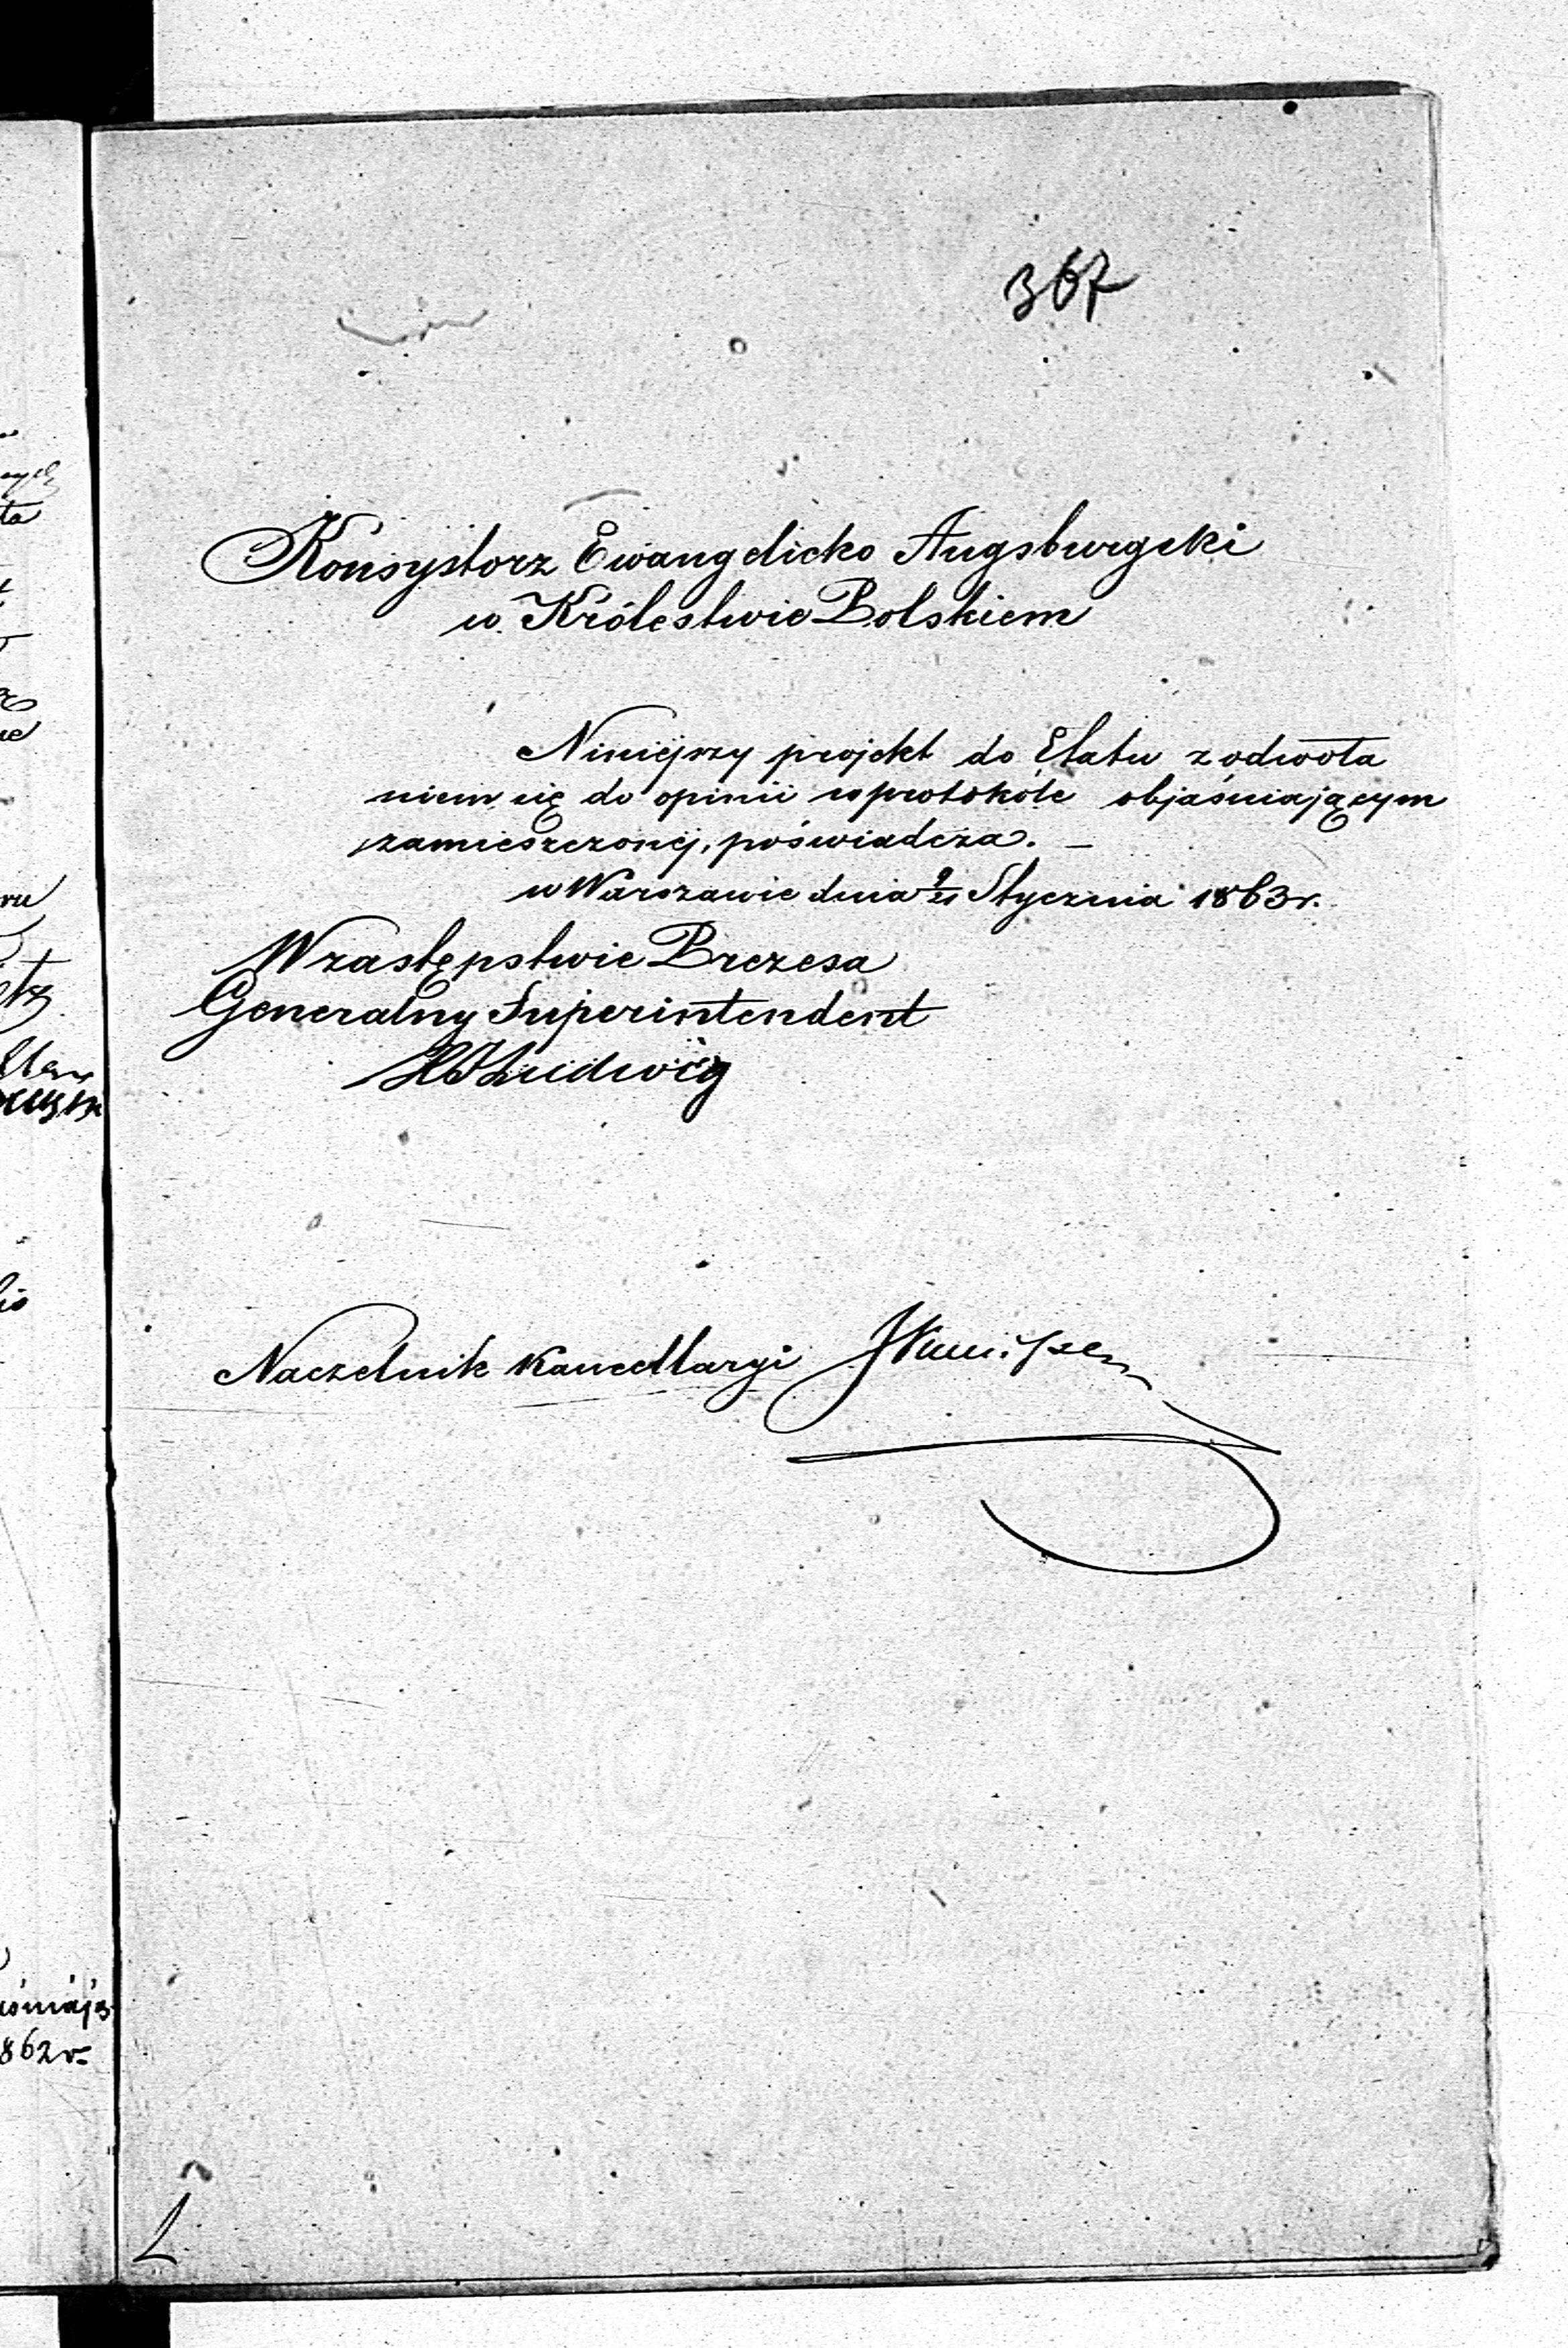 367
Konsystorz Ewangelicko Augsburgski
w Królestwie Polskiem
Niniejszy projekt do Etatu z odwoła
niem się do opinii w protokóle objaśniającym
zamieszczonéj, poświadcza. _
w Warszawie dnia 9/21 Stycznia 1863 r.
W zastępstwie Prezesa
Generalny Superintendent
Ludwig
Naczelnik Kancellaryi
862 r.